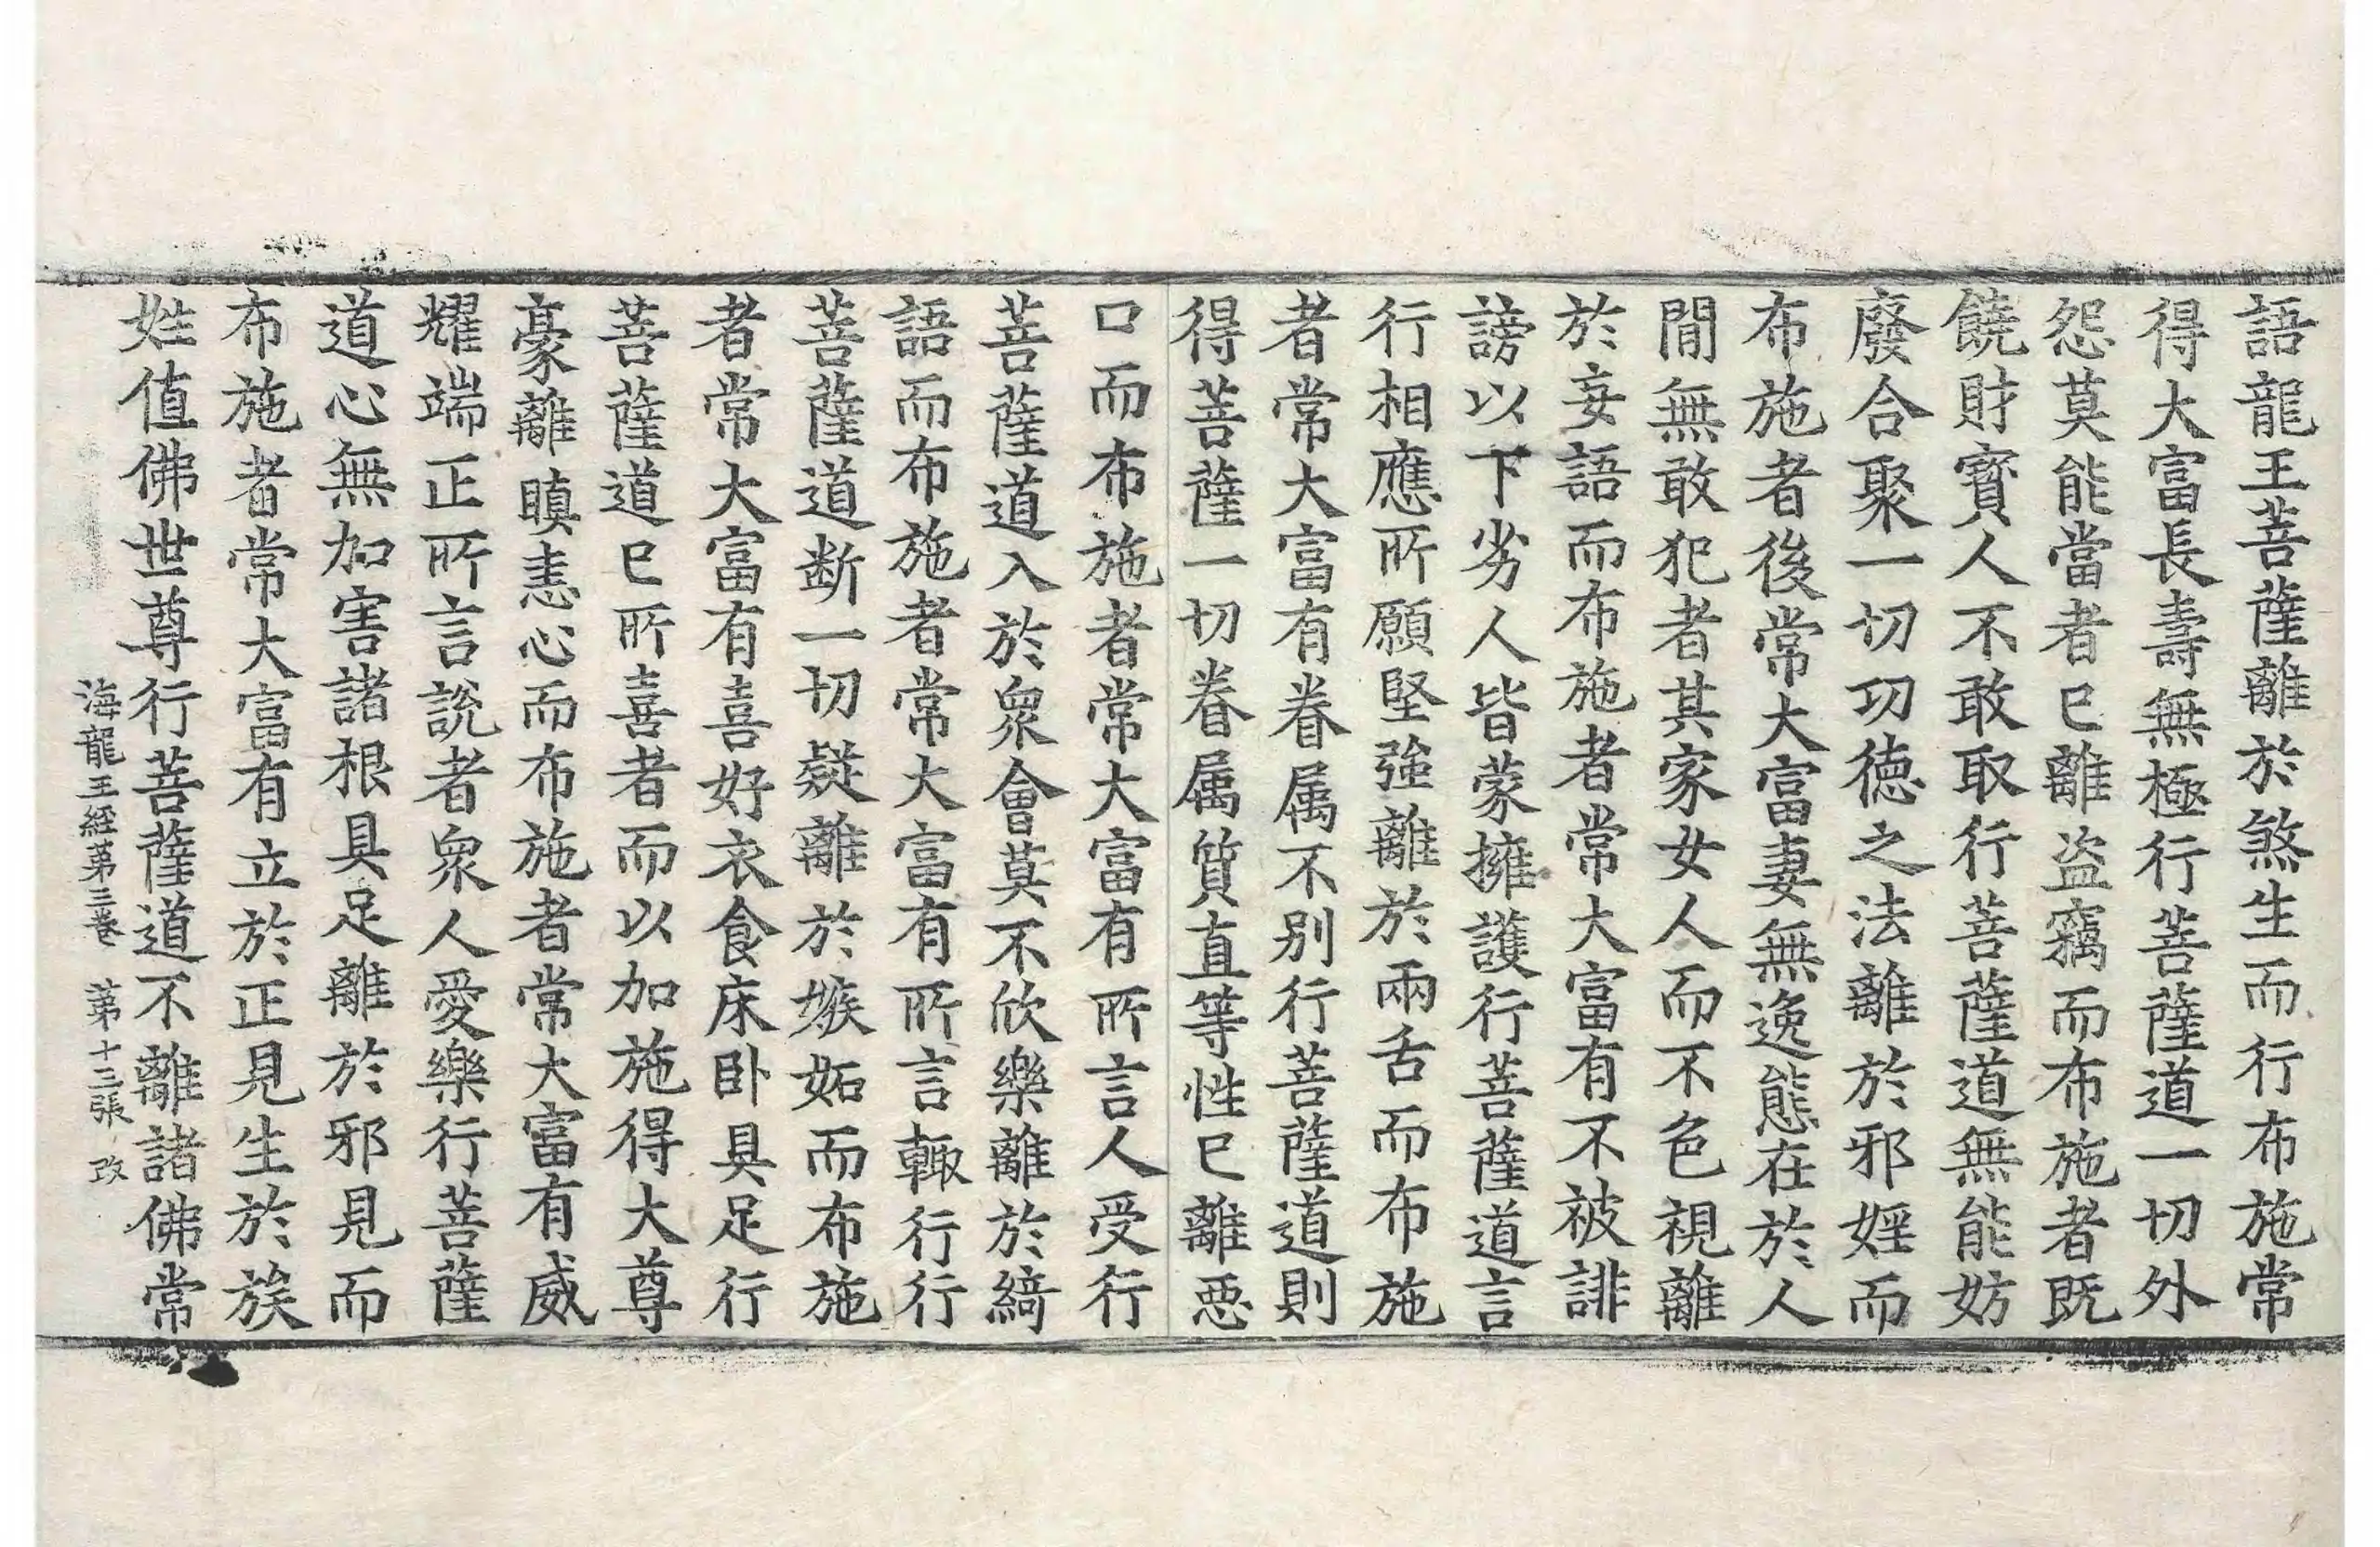 語龍王菩薩離於煞生而行布施常
得大富長壽無極行菩薩道一切外
怨莫能當者已離盗竊而布施者既
饒財寳人不敢取行菩薩道無能妨
廢合聚一切功德之法離於邪婬而
布施者後常大富妻無逸態在於人
閒無敢犯者其家女人而不色視離
於妄語而布施者常大富有不被誹
謗以下劣人皆蒙擁護行菩薩道言
行相應所願堅強離於兩舌而布施
者常大富有眷属不别行菩薩道則
得菩薩一切眷属質直等性已離惡
口而布施者常大富有所言人受行
菩薩道入於衆會莫不欣樂離於綺
語而布施者常大富有所言輙行行
菩薩道断一切疑離於嫉妬而布施
者常大富有喜好衣食床卧具足行
菩薩道已所喜者而以加施得大尊
豪離瞋恚心而布施者常大富有威
耀端正所言說者衆人愛樂行菩薩
道心無加害諸根具足離於邪見而
布施者常大富有立於正見生於族
姓值佛世尊行菩薩道不離諸佛常
海龍王經第三卷 第十三張 改